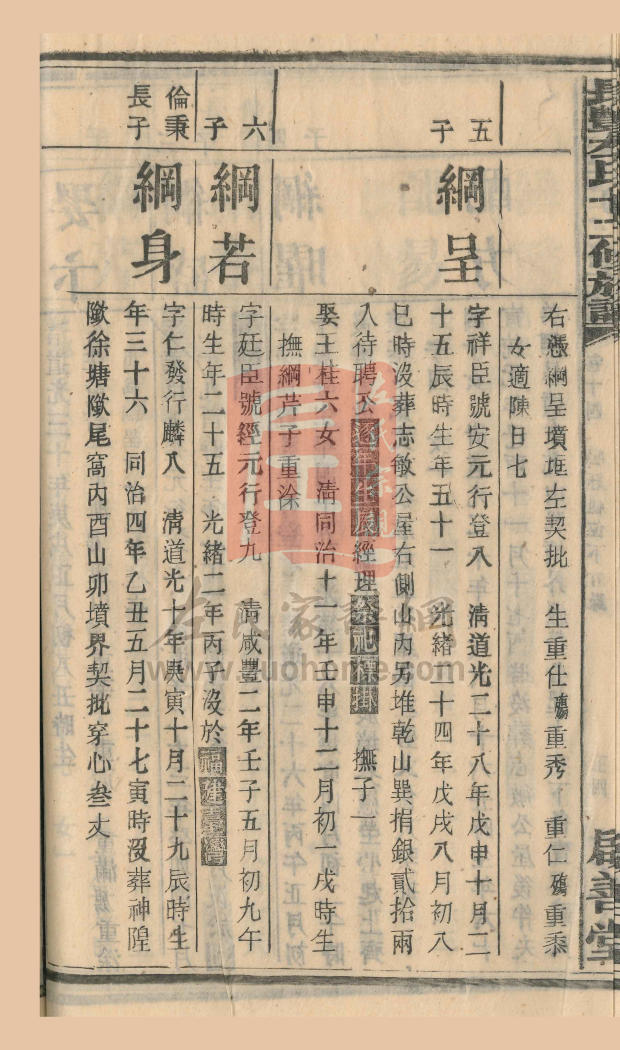 右憑綱呈墳堆左契批 生重仕殤重秀 重仁殤重黍
女適陳日七
五子
綱呈
字祥臣號安元行登入 清道光二十八年戊申十月二
十五辰時生年五十一 光緒二十四年戊戌八月初八
巳時沒葬志敏公屋右側山內另堆乾山巽捐銀貳拾兩
入待聘公逐年生辰經理祭祀標掛 撫子一
娶王桂六女 清同治十一年壬申十二月初一戌時生
撫綱芹子重涂
六子
綱若
字廷臣號經元行登九 清咸豐二年壬子五月初九午
時生年二十五 光緒二年丙子沒於福建臺灣
倫秉長子
綱身
字仁發行麟八 清道光十年庚寅十月二十九辰時生
年三十六 同治四年乙丑五月二十七寅時沒葬神隍
隞徐塘隞尾窩內酉山卯墳界契批穿心叁丈
氏十二修族譜
善堂
左氏家譜網
www.zuohome.com